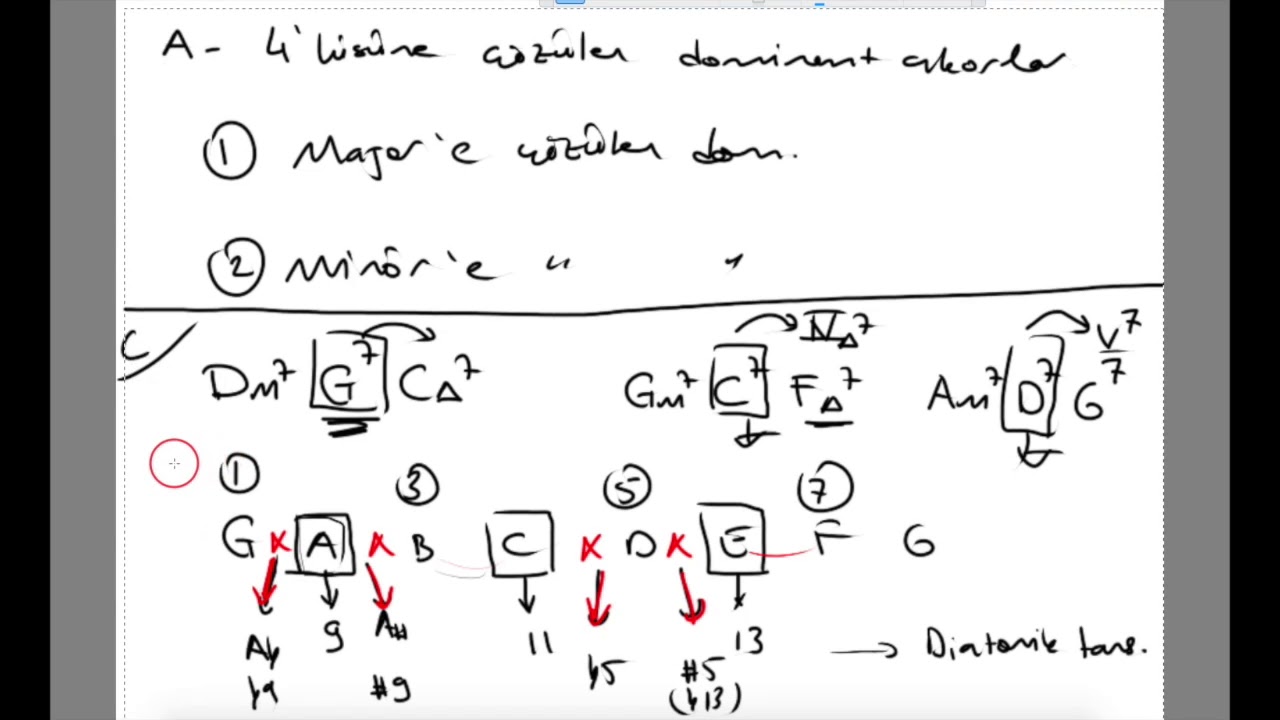 A - 4'lüsüne çözülen dominant akorlar
① Major'e çözülen dom.
② Minör'e " "
C
Dm7 G7 CΔ7 Gm7 C7 FΔ7 IVΔ7 Am7 D7 G7 V7
① ③ ⑤ ⑦
G x A x B C x D x E F G
Ab 9 A# 11 b5 #5 13 → Diatonik tans.
b9 #9 (b13)